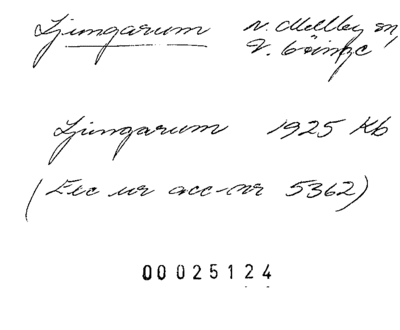 Ljungarum N. Mellby sn,
V. Göinge
Ljungarum 1925 Kb
(Exc ur acc-nr 5362)
00025124